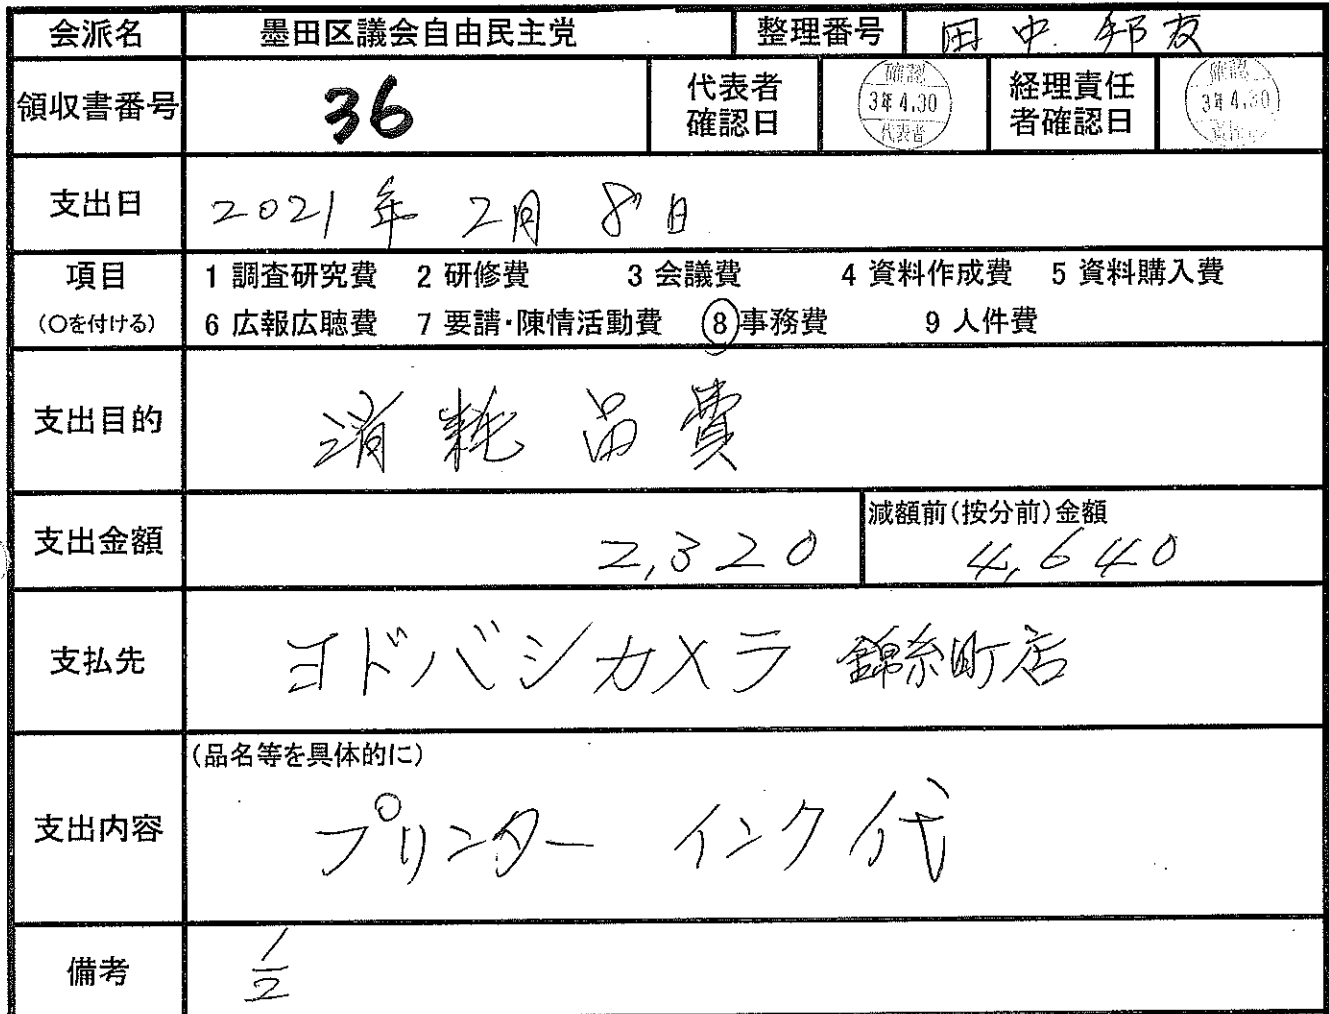 会派名 墨田区議会自由民主党 整理番号 田中邦友
領収書番号 36 代表者確認日 確認 3年4.30 代表者 経理責任者確認日 確認 3年4.30
支出日 2021年 2月 8日
項目 1 調査研究費 2 研修費 3 会議費 4 資料作成費 5 資料購入費
(○を付ける) 6 広報広聴費 7 要請・陳情活動費 8 事務費 9 人件費
支出目的 消耗品費
支出金額 2,320 減額前(按分前)金額 4,640
支払先 ヨドバシカメラ 錦糸町店
(品名等を具体的に)
支出内容 プリンター インク代
備考 1/2